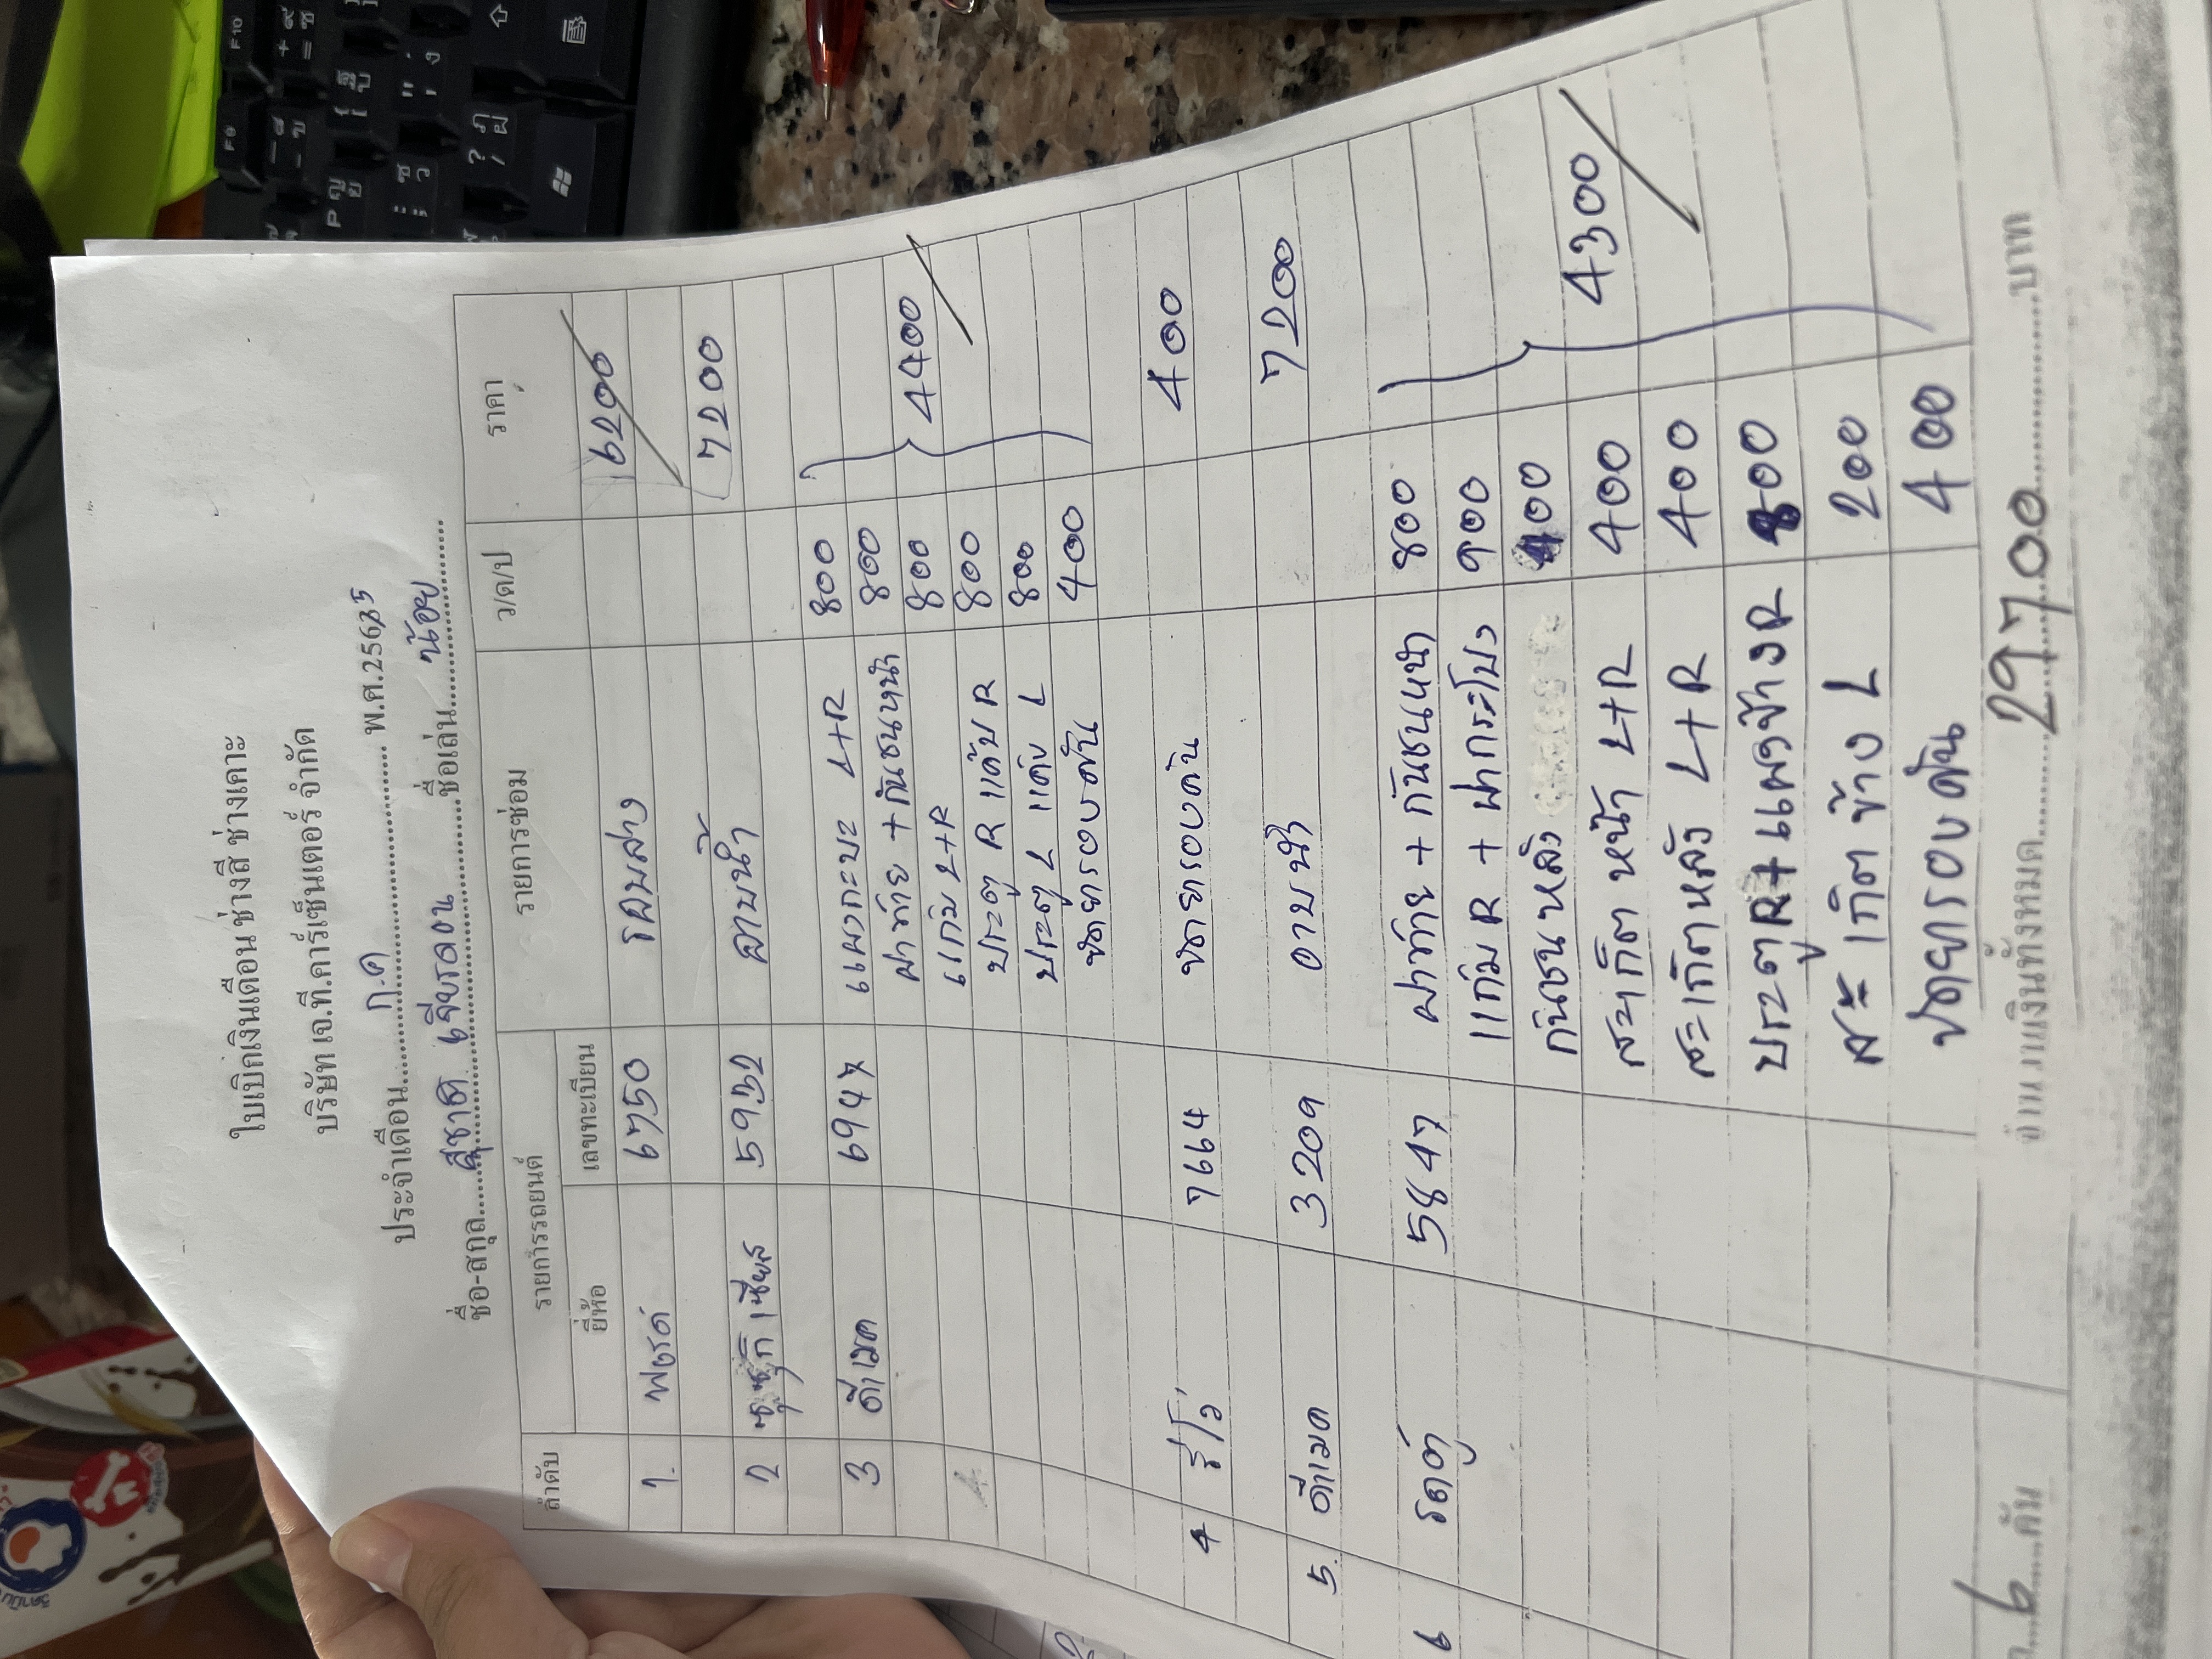 ใบเบิกเงินเดือน ช่างสี ช่างเคาะ
บริษัท เจ.ที.คาร์เซ็นเตอร์ จำกัด
ประจำเดือน ก.ค พ.ศ.2565
ชื่อ-สกุล สุชาติ ชื่อเล่น น้อย
ลำดับ รายการรถยนต์ รายการซ่อม ว/ด/ป ราคา
ยี่ห้อ เลขทะเบียน
1. ฟอร์ด 6750 รอบสาง 6200
7200
2 ซูซูกิ เซียส 5932 อาบน้ำ
3 ดีแมค 6947 แผงกะบะ L+R 800
ฝาท้าย + กันชนหน้า 800
แก้ม L+R 800 4400
ประตู R แค้บ R 800
ประตู L แค้บ L 800
ขัดยารอบคัน 400
4 รีโว่ 7664 ขัดยารอบคัน 400
5. ดีแมค 3209 อาบน้ำ 7200
6 รถตู้ 5847 ฝาท้าย + กันชนหน้า 800
แก้ม R + ฝากระโปรง 900
กันชนหลัง 400
สะเก็ต หน้า L+R 400 4300
สะเก็ตหลัง L+R 400
ประตู R + แผงข้าง R 800
สะเก็ต ข้าง L 200
ขัดยารอบคัน 400
6 คัน จำนวนเงินทั้งหมด 29700 บาท